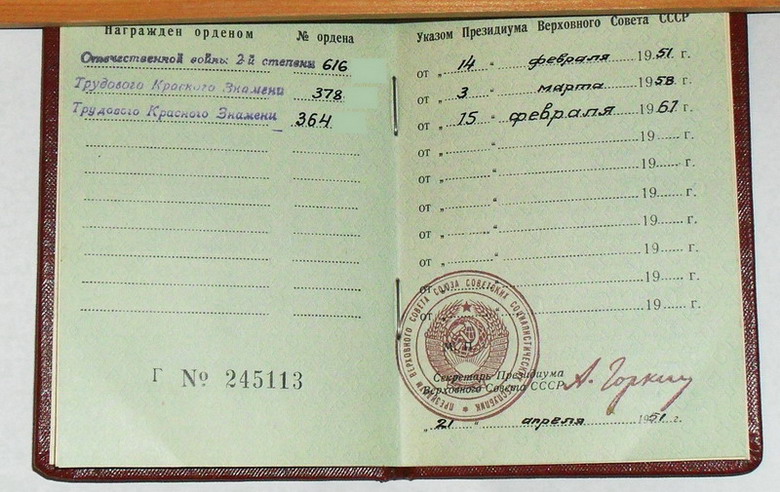 Награжден орденом № ордена
Отечественной войны 2-й степени 616
Трудового Красного Знамени 378
Трудового Красного Знамени 364
Г № 245113
Указом Президиума Верховного Совета СССР
от „ 14 “ февраля 1951 г.
от „ 3 “ марта 1958 г.
от „ 15 “ февраля 1961 г.
от „ “ 19 г.
от „ “ 19 г.
от „ “ 19 г.
от „ “ 19 г.
от „ “ 19 г.
от „ “ 19 г.
от „ “ 19 г.
ПРЕЗИДИУМ ВЕРХОВНОГО СОВЕТА СОЮЗА СОВЕТСКИХ СОЦИАЛИСТИЧЕСКИХ РЕСПУБЛИК
М. П.
Секретарь Президиума
Верховного Совета СССР А. Горкин
„ 21 “ апреля 1951 г.